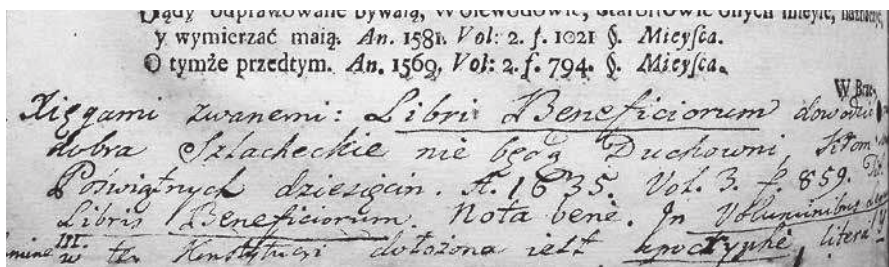 Sądy odprawowane bywaią, Woiewodowie, Starostowie onych mieyſc, naznaczę
y wymierzać maią. An. 1581. Vol: 2. ſ. 1021 §. Mieyſca.
O tymże przedtym. An. 1569, Vol: 2. ſ. 794. §. Mieyſca.
W Brze-
Xięgami zwanemi: Libri Beneficiorum dowodzić
dobra Szlacheckie nie będą Duchowni,
Poświątnych dziesięcin. A. 1635. Vol. 3. f. 859.
Libris Beneficiorum. Nota bene. In Voluminibus
III. w tey Konstytucyi dołożona iest apocryphè, litera